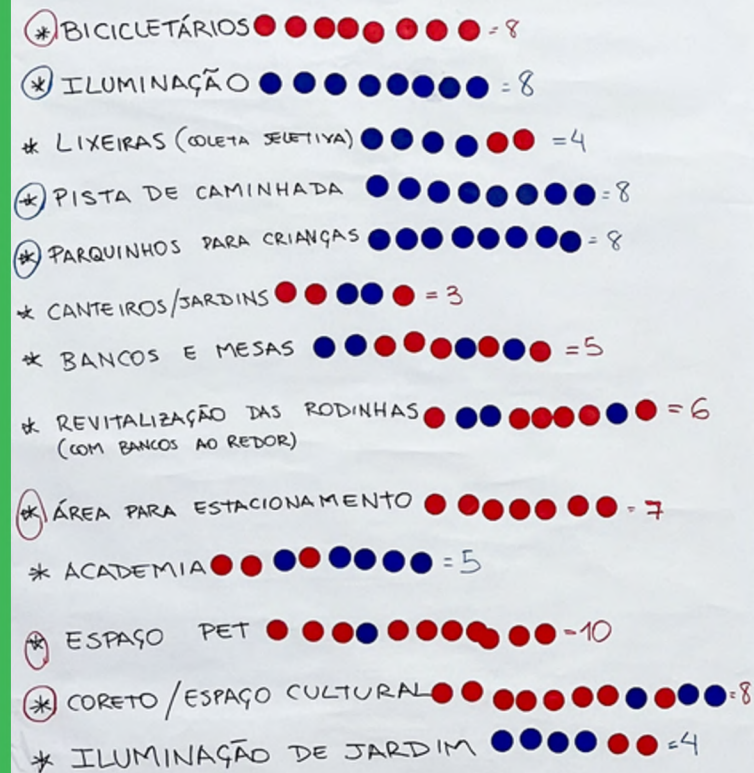 * BICICLETÁRIOS = 8
* ILUMINAÇÃO = 8
* LIXEIRAS (COLETA SELETIVA) = 4
* PISTA DE CAMINHADA = 8
* PARQUINHOS PARA CRIANÇAS = 8
* CANTEIROS/JARDINS = 3
* BANCOS E MESAS = 5
* REVITALIZAÇÃO DAS RODINHAS = 6
(COM BANCOS AO REDOR)
* ÁREA PARA ESTACIONAMENTO = 7
* ACADEMIA = 5
* ESPAÇO PET = 10
* CORETO/ESPAÇO CULTURAL = 8
* ILUMINAÇÃO DE JARDIM = 4